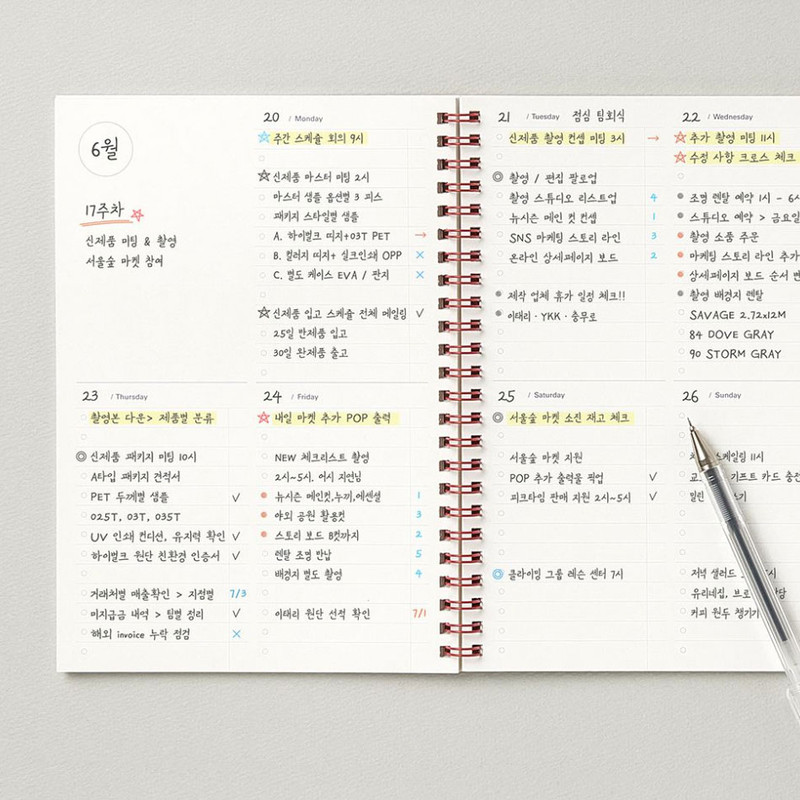 6월
17주차
신제품 미팅 & 촬영
서울숲 마켓 참여
20 / Monday
주간 스케쥴 회의 9시
신제품 마스터 미팅 2시
마스터 샘플 옵션별 3 피스
패키지 스타일별 샘플
A. 하이벌크 띠지+03T PET →
B. 컬러지 띠지+ 실크인쇄 OPP ×
C. 별도 케이스 EVA / 판지 ×
신제품 입고 스케쥴 전체 메일링 ✓
25일 반제품 입고
30일 완제품 출고
21 / Tuesday 점심 팀회식
신제품 촬영 컨셉 미팅 3시 →
촬영 / 편집 팔로업
촬영 스튜디오 리스트업 4
뉴시즌 메인 컷 컨셉 1
SNS 마케팅 스토리 라인 3
온라인 상세페이지 보드 2
제작 업체 휴가 일정 체크!!
이태리 · YKK · 충무로
22 / Wednesday
추가 촬영 미팅 11시
수정 사항 크로스 체크
조명 렌탈 예약 1시 -
스튜디오 예약 > 금요일
촬영 소품 주문
마케팅 스토리 라인 추가
상세페이지 보드 순서
촬영 배경지 렌탈
SAVAGE 2.72x12M
84 DOVE GRAY
90 STORM GRAY
23 / Thursday
촬영본 다운> 제품별 분류
신제품 패키지 미팅 10시
A타입 패키지 견적서
PET 두께별 샘플 ✓
025T, 03T, 035T
UV 인쇄 컨디션, 유지력 확인 ✓
하이벌크 원단 친환경 인증서 ✓
거래처별 매출확인 > 지정별 7/3
미지급금 내역 > 팀별 정리 ✓
해외 invoice 누락 점검 ×
24 / Friday
내일 마켓 추가 POP 출력
NEW 체크리스트 촬영
2시~5시. 어시 지연님
뉴시즌 메인컷,누끼,에센셜 1
야외 공원 활용컷 3
스토리 보드 B컷까지 2
렌탈 조명 반납 5
배경지 별도 촬영 4
이태리 원단 선적 확인 7/1
25 / Saturday
서울숲 마켓 소진 재고 체크
서울숲 마켓 지원
POP 추가 출력물 픽업 ✓
피크타임 판매 지원 2시~5시 ✓
클라이밍 그룹 레슨 센터 7시
26 / Sunday
스케일링 11시
기프트 카드
저녁 샐러드
유리네집,
커피 원두 챙기기